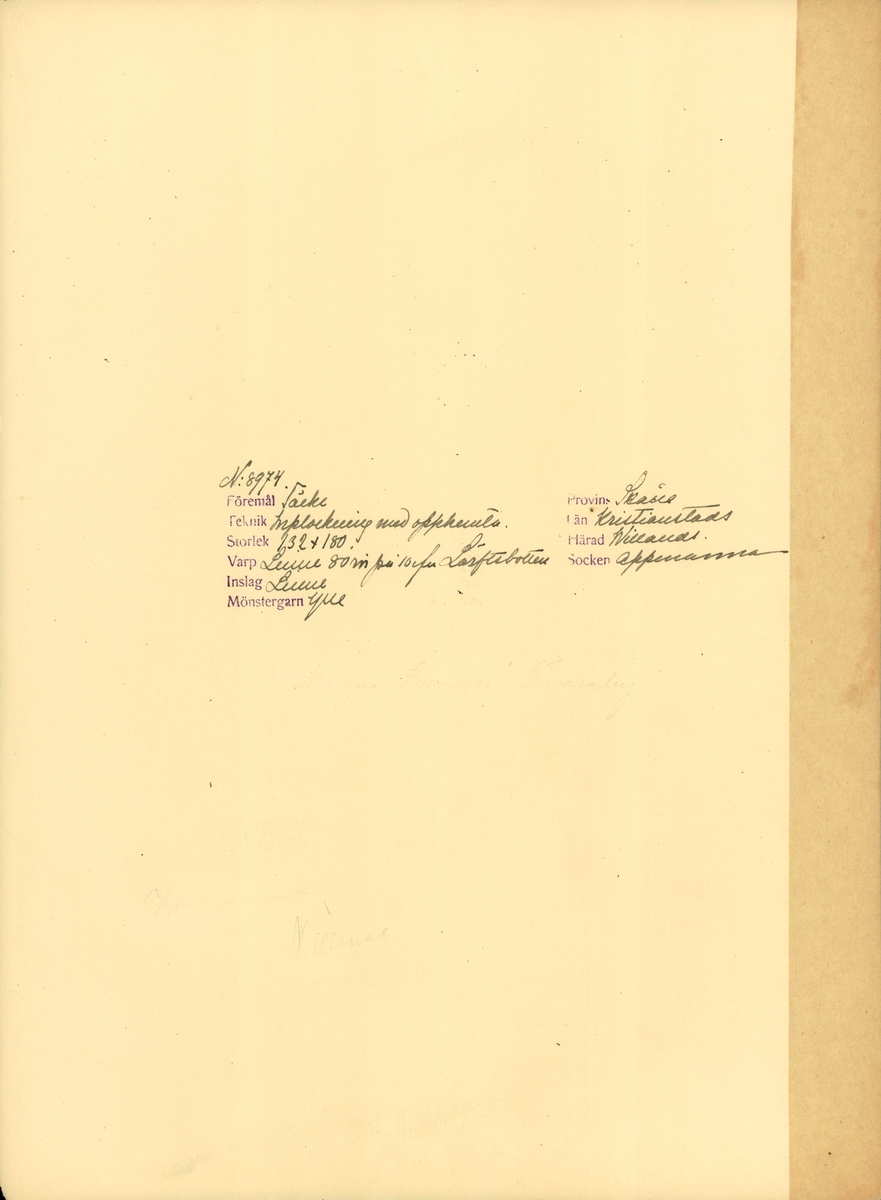 N: 8974.
Föremål Täcke
Teknik Inplockning med opphemta.
Storlek 132 x 180.
Varp Linne 80 in på 10 c/m Lärftsbotten
Inslag Linne
Mönstergarn Ylle
Provins Skåne
Län Kristianstads
Härad Willands.
Socken Oppmanna
Villands